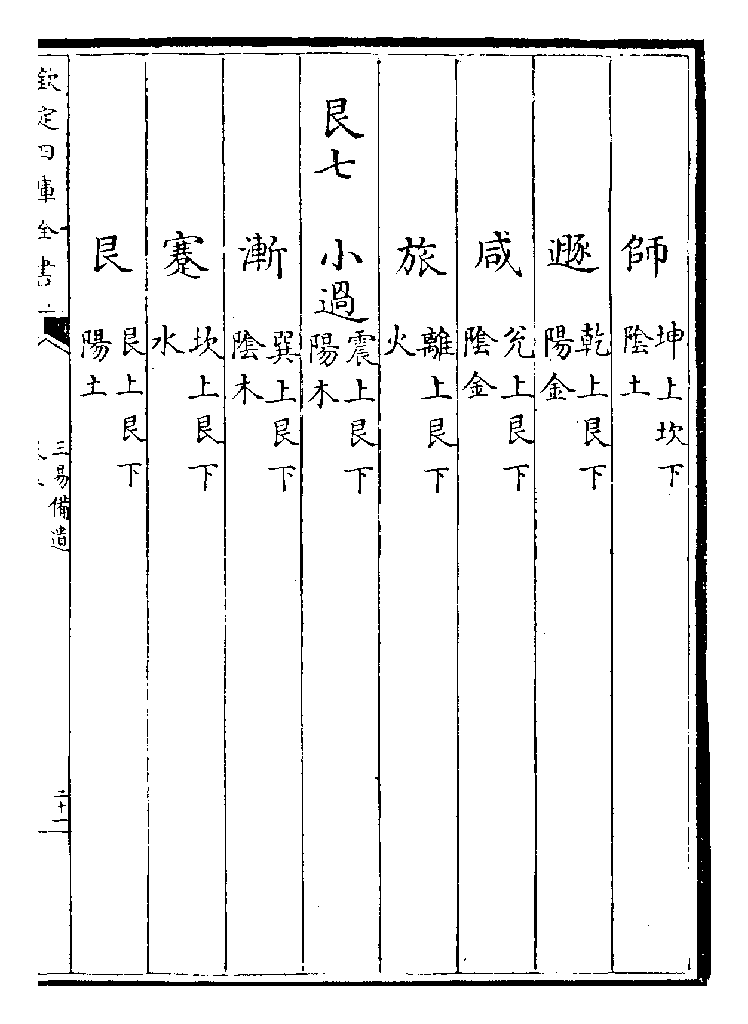 師 坤上坎下 陰土
遯 乾上艮下 陽金
咸 兊上艮下 陰金
旅 離上艮下 火
艮七 小過 震上艮下 陽木
漸 巽上艮下 陰木
蹇 坎上艮下 水
艮 艮上艮下 陽土
欽定四庫全書
三易備遺
二十一